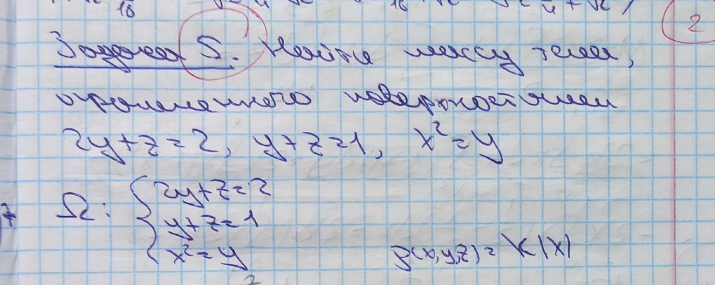 Задача 5. Найти массу тела,
ограниченного поверхностями
2y+z=2, y+z=1, x²=y
Ω: { 2y+z=2
y+z=1
x²=y ρ(x,y,z)=K|x|
2